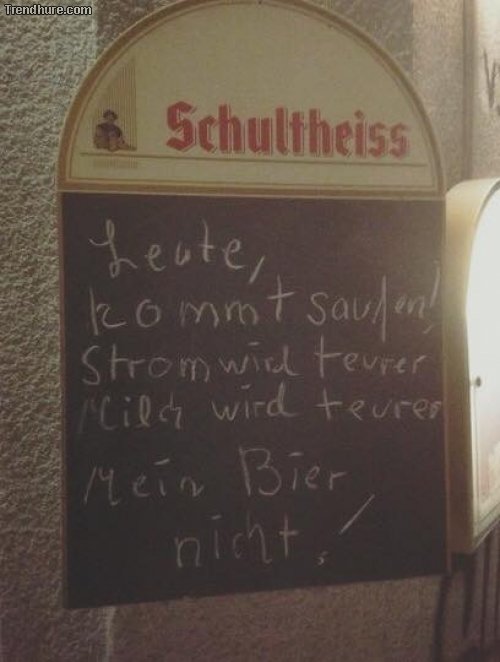 Trendhure.com
Schultheiss
Leute,
kommt saufen!
Strom wird teurer
Milch wird teurer
Mein Bier
nicht!